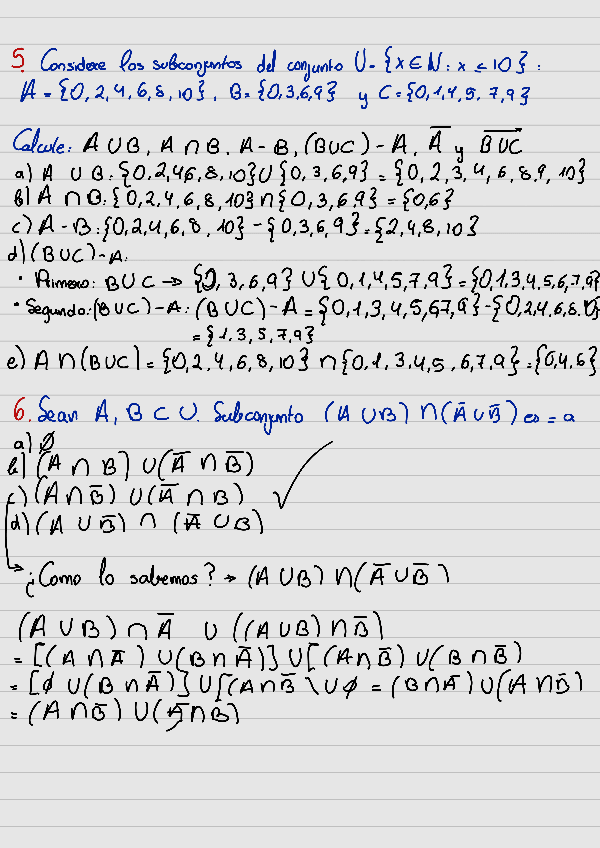 5. Considere los subconjuntos del conjunto U = {x ∈ N : x ≤ 10} :
A = {0, 2, 4, 6, 8, 10}, B = {0,3,6,9} y C = {0,1,4,5,7,9}
Calcule: A ∪ B, A ∩ B, A - B, (B∪C) - A, A̅ y B̅U̅C̅
a) A ∪ B: {0,2,46,8,10} ∪ {0,3,6,9} = {0,2,3,4,6,8,9,10}
b) A ∩ B: {0,2,4,6,8,10} ∩ {0,3,6,9} = {0,6}
c) A - B: {0,2,4,6,8,10} - {0,3,6,9} = {2,4,8,10}
d) (B ∪ C) - A:
· Primero: B ∪ C → {0,3,6,9} ∪ {0,1,4,5,7,9} = {0,1,3,4,5,6,7,9}
· Segundo: (B ∪ C) - A: (B ∪ C) - A = {0,1,3,4,5,6,7,9} - {0,2,4,6,8,10}
= {1,3,5,7,9}
e) A ∩ (B ∪ C) = {0,2,4,6,8,10} ∩ {0,1,3,4,5,6,7,9} = {0,4,6}
6. Sean A, B ⊂ U. Subconjunto (A ∪ B) ∩ (A̅ ∪ B̅) es = a
a) ∅
b) (A ∩ B) ∪ (A̅ ∩ B̅)
c) (A ∩ B̅) ∪ (A̅ ∩ B) ✓
d) (A ∪ B̅) ∩ (A̅ ∪ B)
¿Como lo sabemos? → (A ∪ B) ∩ (A̅ ∪ B̅)
(A ∪ B) ∩ A̅ ∪ ((A ∪ B) ∩ B̅)
= [(A ∩ A̅) ∪ (B ∩ A̅)] ∪ [(A ∩ B̅) ∪ (B ∩ B̅)
= [∅ ∪ (B ∩ A̅)] ∪ [(A ∩ B̅) ∪ ∅ = (B ∩ A̅) ∪ (A ∩ B̅)
= (A ∩ B̅) ∪ (A̅ ∩ B)